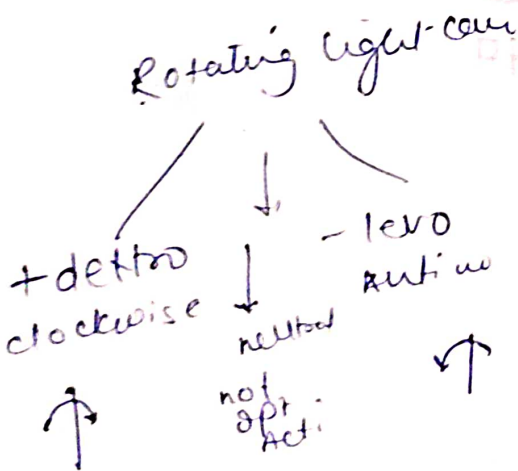 Rotating light
+ dextro
clockwise
neutral
not
opt
Acti.
- levo
Anti